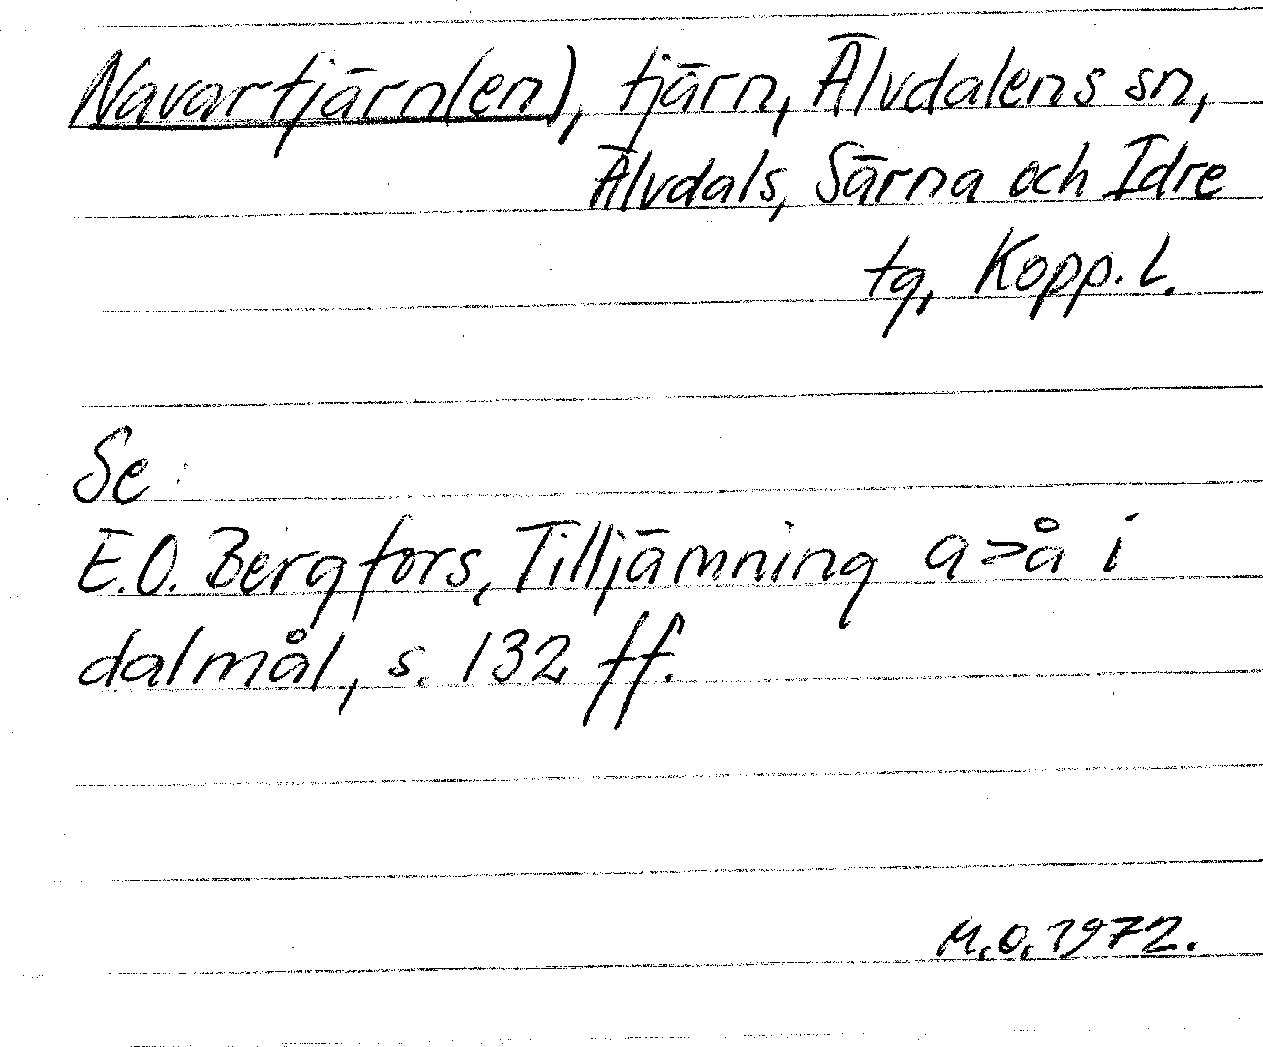 Navartjärn(en), tjärn, Älvdalens sn,
Älvdals, Särna och Idre
tg, Kopp. L.
Se:
E.O. Bergfors, Tilljämning a>å i
dalmål, s. 132 ff.
M.O. 1972.